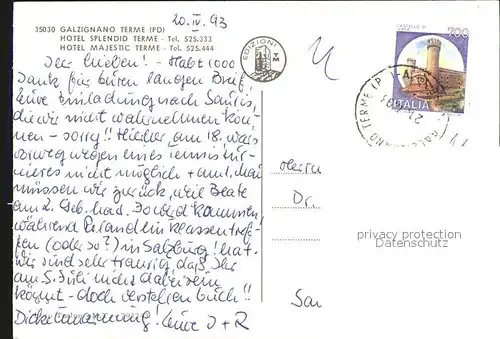 20.IV.93
35030 GALZIGNANO TERME (PD)
HOTEL SPLENDID TERME - Tel. 525.333
HOTEL MAJESTIC TERME - Tel. 525.444
EDIZIONI
TM
700
ITALIA
TERME (P
Ihr Lieben! - Habt 1000
Dank für Euren langen Brief,
Eure Einladung nach
die wir nicht wahrnehmen kön-
nen - sorry!! Hierher am 18. wars
wegen eines Tennistur-
nieres nicht möglich + am 1. Mai
müssen wir zurück, weil Beate
am 2. Geb. hat. Do wird kommen,
während Roland ein Klassentref-
fen (oder so?) in Salzburg! hat.
Wir sind sehr traurig, daß Ihr
am 5. Juli nicht dabei sein
könnt - doch verstehen Euch!!
Dicke Umarmung! Eure J + R
Herrn
Dr.
privacy protection
Datenschutz
San